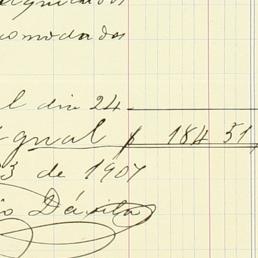 comodados
l dia 24
Igual $ 184 51
3 de 1907
io Dávila